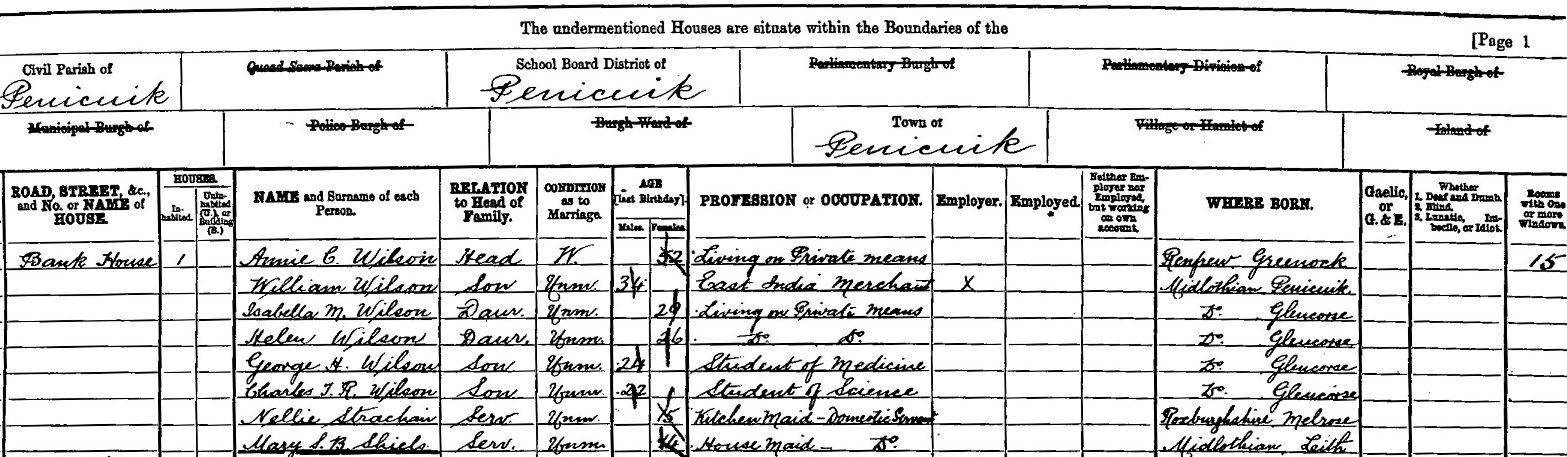 The undermentioned Houses are situate within the Boundaries of the
[Page 1
Civil Parish of
Penicuik
Quoad Sacra Parish of
School Board District of
Penicuik
Parliamentary Burgh of
Parliamentary Division of
Royal Burgh of
Municipal Burgh of
Police Burgh of
Burgh Ward of
Town of
Penicuik
Village or Hamlet of
Island of
ROAD, STREET, &c., and No. or NAME of HOUSE.
HOUSES.
In-habited.
Unin-habited (U.), or Building (B.)
NAME and Surname of each Person.
RELATION to Head of Family.
CONDITION as to Marriage.
AGE [last Birthday].
Males. Females.
PROFESSION or OCCUPATION.
Employer.
Employed.
Neither Em-ployer nor Employed, but working on own account.
WHERE BORN.
Gaelic, or G. & E.
Whether 1. Deaf and Dumb. 2. Blind. 3. Lunatic, Im-becile, or Idiot.
Rooms with One or more Windows.
Bank House 1 Annie C. Wilson Head W. 52 Living on Private means Renfrew Greenock 15
William Wilson Son Unm. 34 East India Merchant X Midlothian Penicuik.
Isabella M. Wilson Daur. Unm. 29 Living on Private means Do. Glencorse
Helen Wilson Daur. Unm. 26 Do. Do. Do. Glencorse
George H. Wilson Son Unm. 24 Student of Medicine Do. Glencorse
Charles T. R. Wilson Son Unm. 22 Student of Science Do. Glencorse
Nellie Strachan Serv. Unm. 15 Kitchen Maid - Domestic Servant Roxburghshire Melrose
Mary S. B. Shiels Serv. Unm. House Maid - Do. Midlothian, Leith